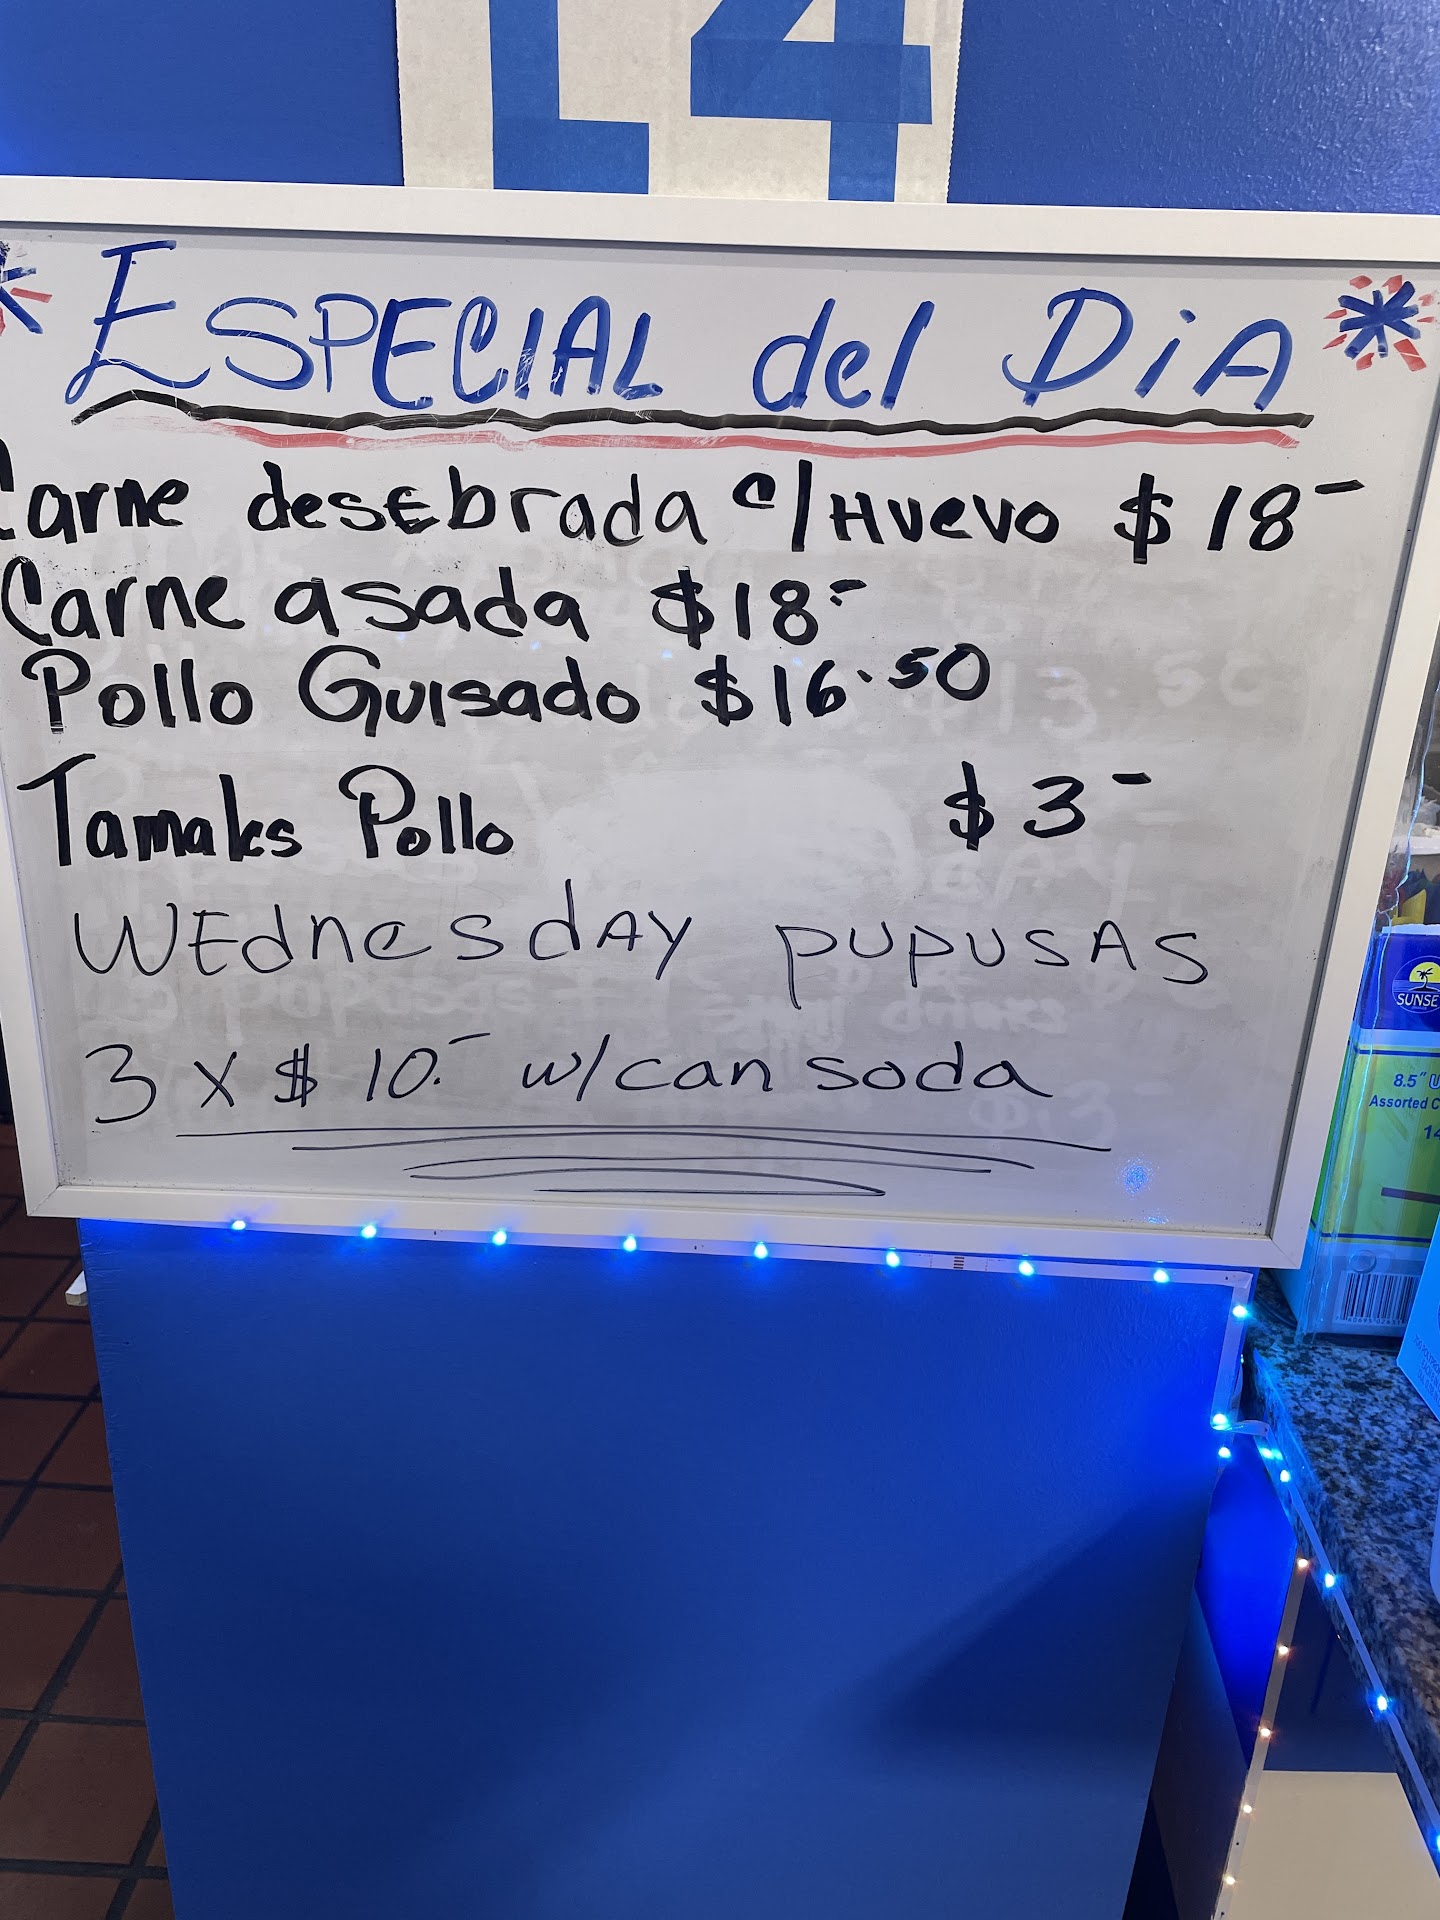 L4
ESPECIAL del DiA
Carne desEbrada c/Huevo $18-
Carne asada $18.-
Pollo Guisado $16.50
Tamales Pollo $3-
WEdnesdAY pupusAs
3 x $10.- w/can soda
SUNSE
8.5" U
Assorted C
14